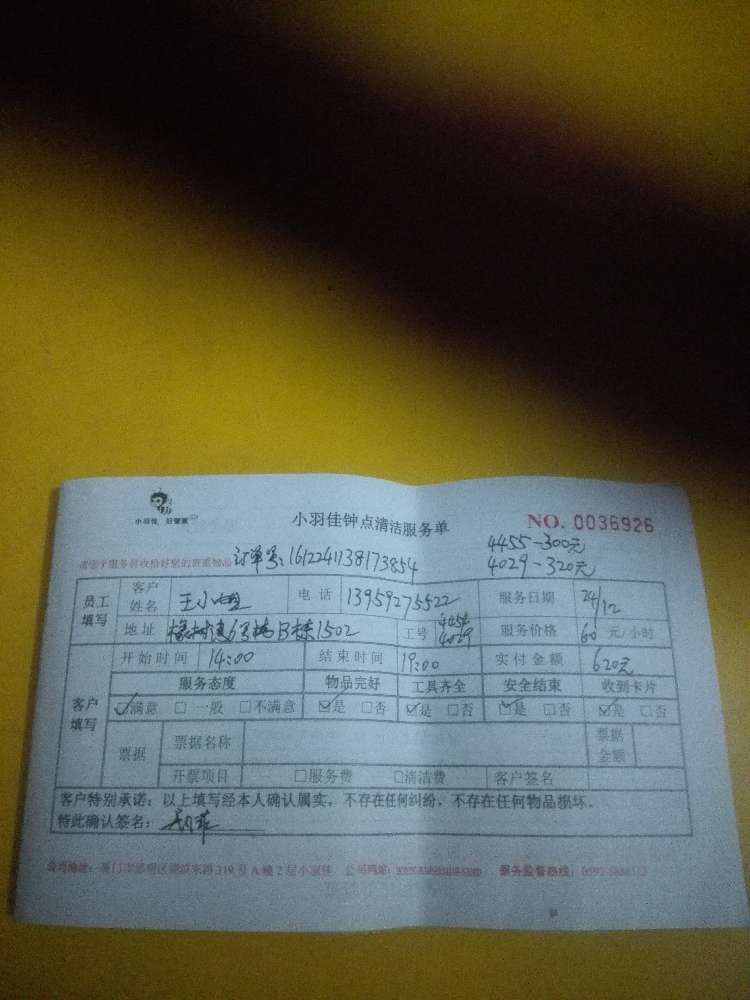 小羽佳 好管家
小羽佳钟点清洁服务单
NO. 0036926
订单号:161224138173854
4455-300元
4029-320元
员工填写
客户姓名 王小
电话 13959275522
服务日期 24/12
地址 6号楼B栋1502
工号 4455 4029
服务价格 60 元/小时
客户填写
开始时间 14:00
结束时间 19:00
实付金额 620元
服务态度 物品完好 工具齐全 安全结束 收到卡片
☑满意 □一般 □不满意 ☑是 □否 ☑是 □否 ☑是 □否 ☑是 □否
票据 票据名称 票据金额
开票项目 □服务费 □清洁费 客户签名
客户特别承诺:以上填写经本人确认属实,不存在任何纠纷,不存在任何物品损坏。
特此确认签名:
公司地址: 319号A幢2层小羽佳 公司网址: 服务监督热线: